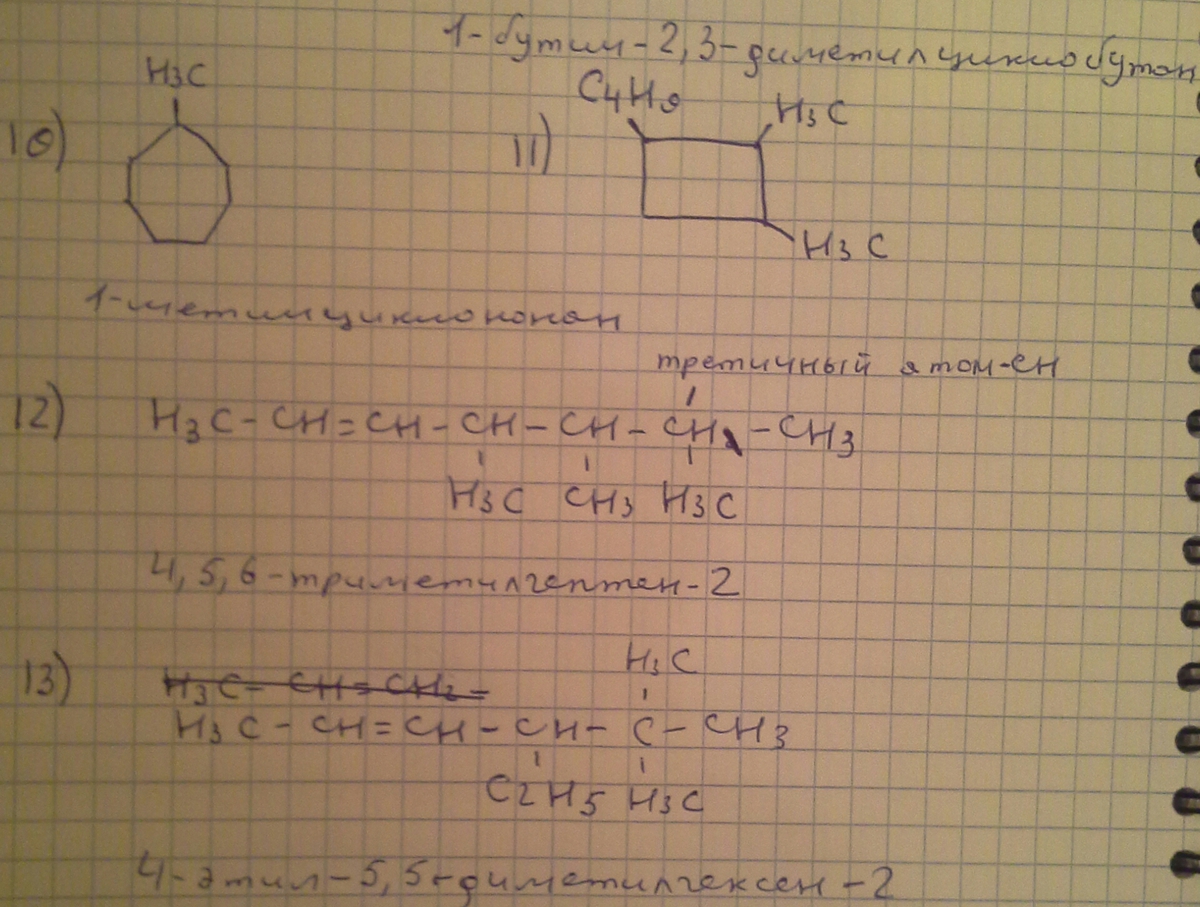 1-бутил-2,3-диметилциклобутан
H3C
10)
C4H9
H3C
11)
H3C
1-метилциклононан
третичный атом-CH
12) H3C-CH=CH-CH-CH-CH-CH3
H3C CH3 H3C
4,5,6-триметилгептен-2
H3C
13) H3C-CH=CH2-
H3C-CH=CH-CH-C-CH3
C2H5 H3C
4-этил-5,5-диметилгексен-2